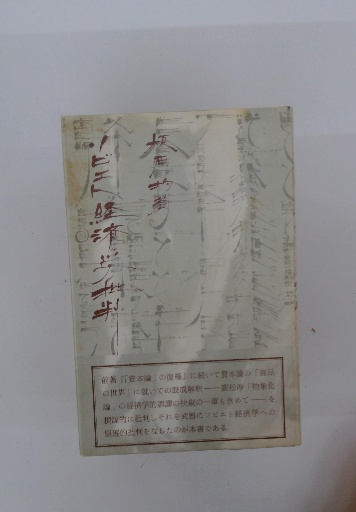 ソビエト経済学批判
前著『「資本論」の復権』に続いて資本論の「商品
の世界」に就いての既成解釈――広松渉「物象化
論」の経済学的誤謬の抉剔の一章も含めて――を
根源的に批判しそれを武器にソビエト経済学への
原理的批判をなしたものが本書である